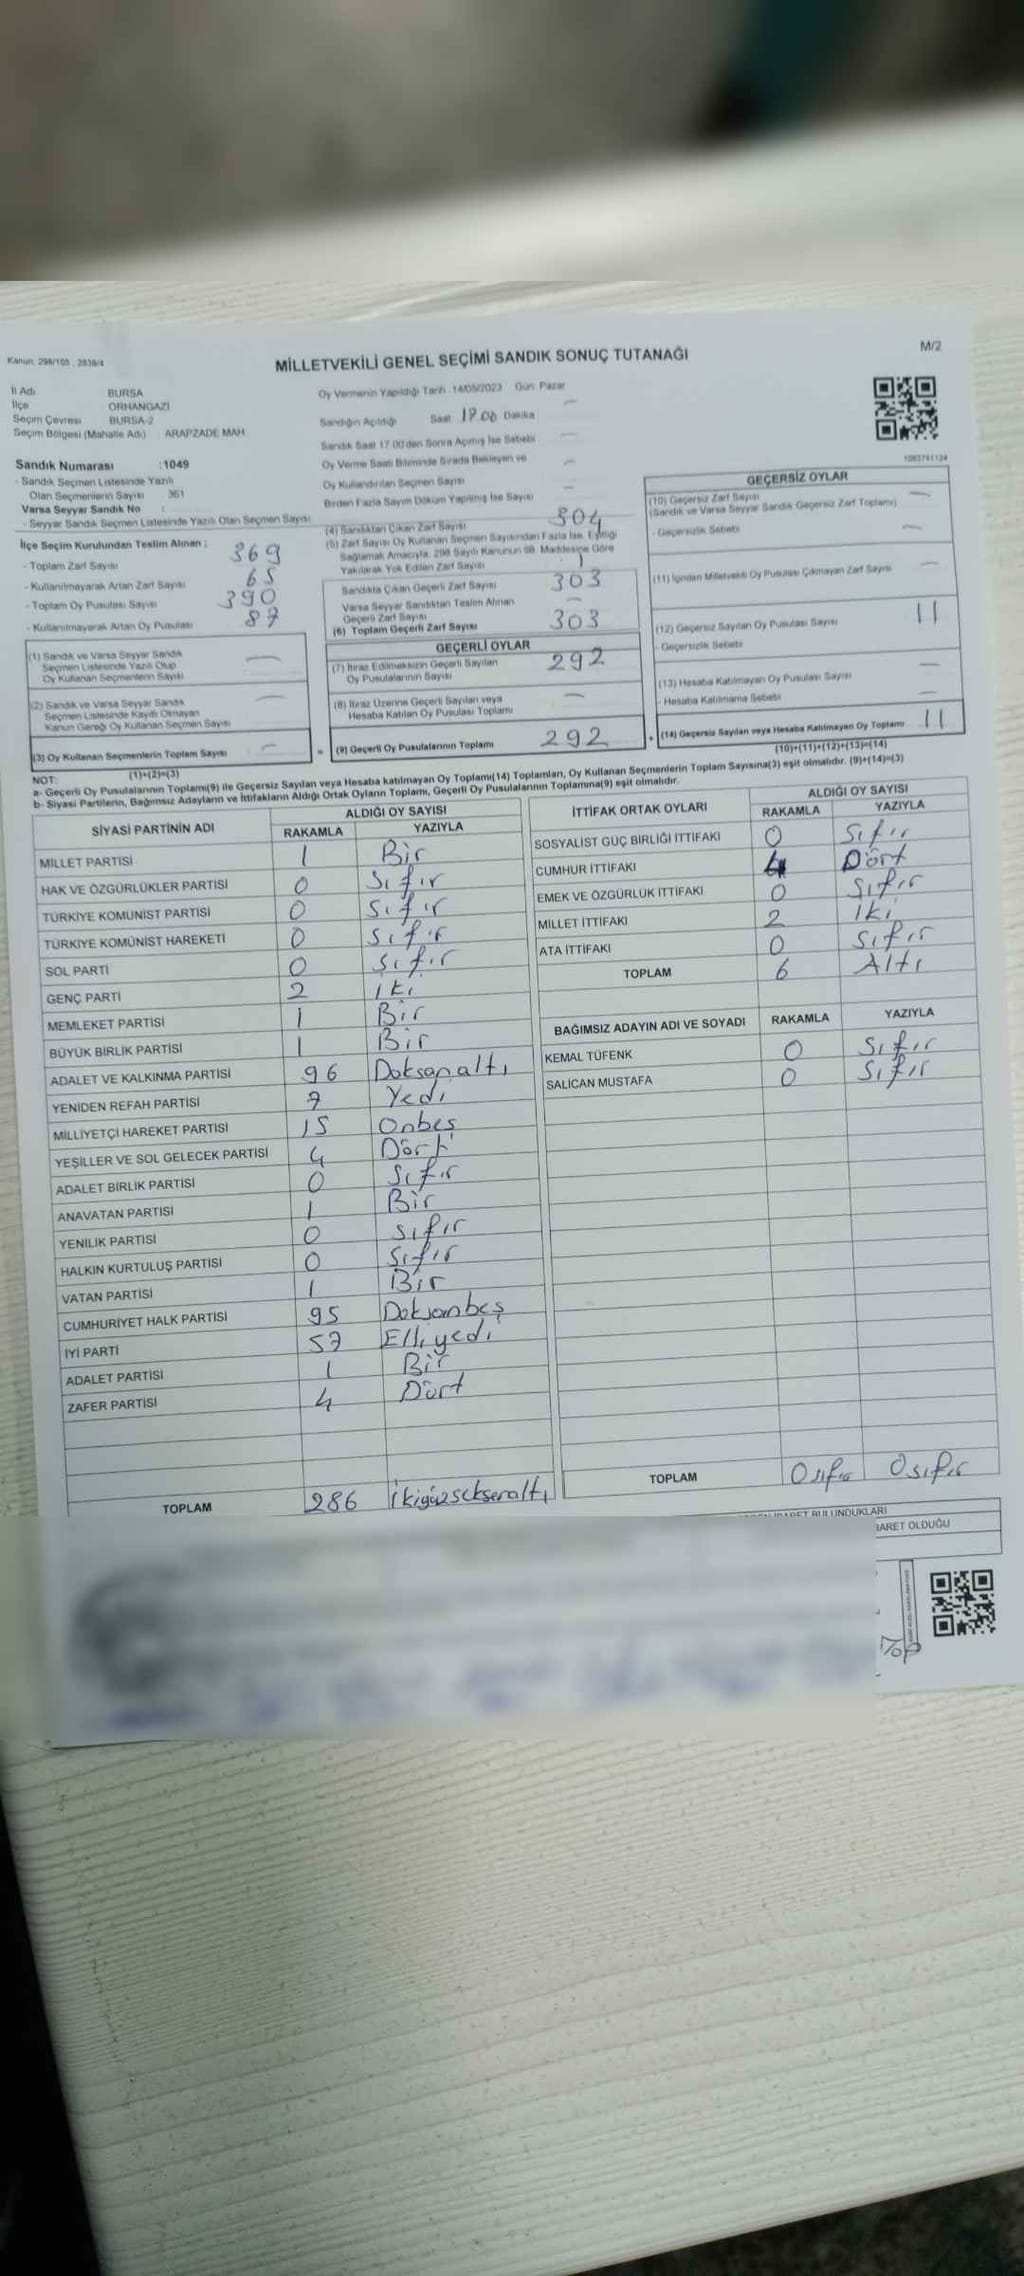 Kanun: 298/105 , 2839/4
M/2
MİLLETVEKİLİ GENEL SEÇİMİ SANDIK SONUÇ TUTANAĞI
İl Adı BURSA
İlçe ORHANGAZİ
Seçim Çevresi BURSA-2
Seçim Bölgesi (Mahalle Adı) : ARAPZADE MAH.
Sandık Numarası :1049
- Sandık Seçmen Listesinde Yazılı
Olan Seçmenlerin Sayısı 361
Varsa Seyyar Sandık No :
- Seyyar Sandık Seçmen Listesinde Yazılı Olan Seçmen Sayısı
İlçe Seçim Kurulundan Teslim Alınan :
- Toplam Zarf Sayısı 369
- Kullanılmayarak Artan Zarf Sayısı 65
- Toplam Oy Pusulası Sayısı 390
- Kullanılmayarak Artan Oy Pusulası 87
(1) Sandık ve Varsa Seyyar Sandık
Seçmen Listesinde Yazılı Olup
Oy Kullanan Seçmenlerin Sayısı —
(2) Sandık ve Varsa Seyyar Sandık
Seçmen Listesinde Kayıtlı Olmayan
Kanun Gereği Oy Kullanan Seçmen Sayısı —
(3) Oy Kullanan Seçmenlerin Toplam Sayısı —
(1)+(2)=(3)
Oy Vermenin Yapıldığı Tarih : 14/05/2023 Gün: Pazar
Sandığın Açıldığı Saat 17.00 Dakika —
Sandık Saat 17.00'den Sonra Açılmış İse Sebebi —
Oy Verme Saati Bitiminde Sırada Bekleyen ve
Oy Kullandırılan Seçmen Sayısı —
Birden Fazla Sayım Döküm Yapılmış İse Sayısı —
(4) Sandıktan Çıkan Zarf Sayısı 304
(5) Zarf Sayısı Oy Kullanan Seçmen Sayısından Fazla İse, Eşitliği
Sağlamak Amacıyla, 298 Sayılı Kanunun 98. Maddesine Göre
Yakılarak Yok Edilen Zarf Sayısı 1
Sandıkta Çıkan Geçerli Zarf Sayısı 303
Varsa Seyyar Sandıktan Teslim Alınan
Geçerli Zarf Sayısı —
(6) Toplam Geçerli Zarf Sayısı 303
GEÇERLİ OYLAR
(7) İtiraz Edilmeksizin Geçerli Sayılan
Oy Pusulalarının Sayısı 292
(8) İtiraz Üzerine Geçerli Sayılan veya
Hesaba Katılan Oy Pusulası Toplamı —
= (9) Geçerli Oy Pusulalarının Toplamı 292
1083791124
GEÇERSİZ OYLAR
(10) Geçersiz Zarf Sayısı
(Sandık ve Varsa Seyyar Sandık Geçersiz Zarf Toplamı) —
- Geçersizlik Sebebi —
(11) İçinden Milletvekili Oy Pusulası Çıkmayan Zarf Sayısı —
(12) Geçersiz Sayılan Oy Pusulası Sayısı 11
- Geçersizlik Sebebi
(13) Hesaba Katılmayan Oy Pusulası Sayısı —
- Hesaba Katılmama Sebebi —
+ (14) Geçersiz Sayılan veya Hesaba Katılmayan Oy Toplamı 11
(10)+(11)+(12)+(13)=(14)
NOT:
a- Geçerli Oy Pusulalarının Toplamı(9) ile Geçersiz Sayılan veya Hesaba katılmayan Oy Toplamı(14) Toplamları, Oy Kullanan Seçmenlerin Toplam Sayısına(3) eşit olmalıdır. (9)+(14)=(3)
b- Siyasi Partilerin, Bağımsız Adayların ve İttifakların Aldığı Ortak Oyların Toplamı, Geçerli Oy Pusulalarının Toplamına(9) eşit olmalıdır.
SİYASİ PARTİNİN ADI ALDIĞI OY SAYISI
RAKAMLA YAZIYLA
MİLLET PARTİSİ 1 Bir
HAK VE ÖZGÜRLÜKLER PARTİSİ 0 Sıfır
TÜRKİYE KOMÜNİST PARTİSİ 0 Sıfır
TÜRKİYE KOMÜNİST HAREKETİ 0 Sıfır
SOL PARTİ 0 Sıfır
GENÇ PARTİ 2 İki
MEMLEKET PARTİSİ 1 Bir
BÜYÜK BİRLİK PARTİSİ 1 Bir
ADALET VE KALKINMA PARTİSİ 96 Doksanaltı
YENİDEN REFAH PARTİSİ 7 Yedi
MİLLİYETÇİ HAREKET PARTİSİ 15 Onbeş
YEŞİLLER VE SOL GELECEK PARTİSİ 4 Dört
ADALET BİRLİK PARTİSİ 0 Sıfır
ANAVATAN PARTİSİ 1 Bir
YENİLİK PARTİSİ 0 Sıfır
HALKIN KURTULUŞ PARTİSİ 0 Sıfır
VATAN PARTİSİ 1 Bir
CUMHURİYET HALK PARTİSİ 95 Doksanbeş
İYİ PARTİ 57 Elliyedi
ADALET PARTİSİ 1 Bir
ZAFER PARTİSİ 4 Dört
TOPLAM 286 İkiyüzseksenaltı
İTTİFAK ORTAK OYLARI ALDIĞI OY SAYISI
RAKAMLA YAZIYLA
SOSYALİST GÜÇ BİRLİĞİ İTTİFAKI 0 Sıfır
CUMHUR İTTİFAKI 4 Dört
EMEK VE ÖZGÜRLÜK İTTİFAKI 0 Sıfır
MİLLET İTTİFAKI 2 İki
ATA İTTİFAKI 0 Sıfır
TOPLAM 6 Altı
BAĞIMSIZ ADAYIN ADI VE SOYADI RAKAMLA YAZIYLA
KEMAL TÜFENK 0 Sıfır
SALİCAN MUSTAFA 0 Sıfır
TOPLAM 0 sıfır 0 sıfır
BULUNDUKLARI
BARET OLDUĞU